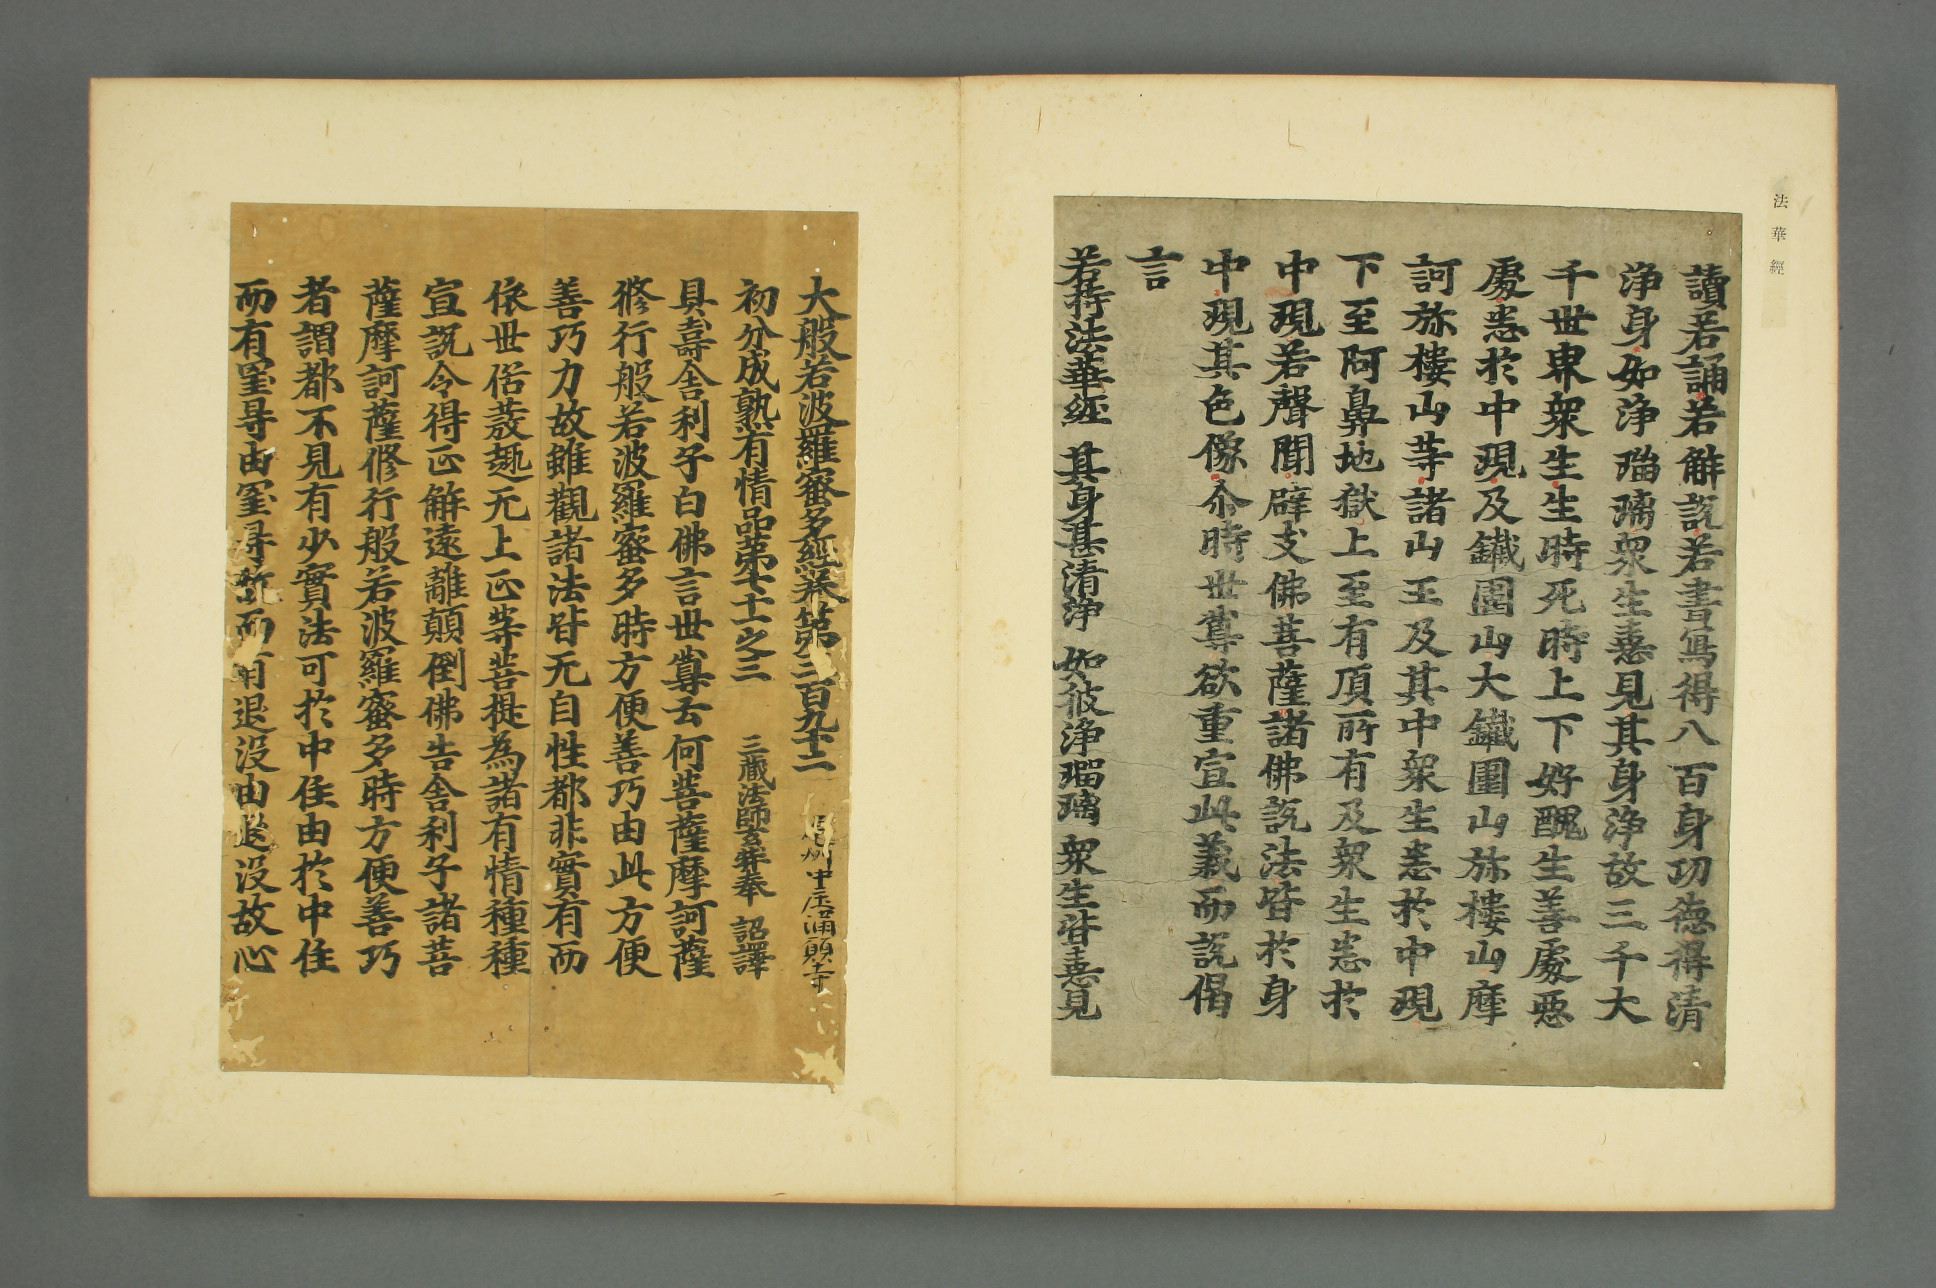 法華經
讀若誦若解說若書寫得八百身功德得清
淨身如淨瑠璃眾生憙見其身淨故三千大
千世界眾生生時死時上下好醜生善處惡
處悉於中現及鐵圍山大鐵圍山弥樓山摩
訶弥樓山等諸山王及其中眾生悉於中現
下至阿鼻地獄上至有頂所有及眾生悉於
中現若聲聞辟支佛菩薩諸佛說法皆於身
中現其色像尒時世尊欲重宣此義而說偈
言
若持法華經 其身甚清淨 如彼淨瑠璃 眾生皆憙見
大般若波羅蜜多經卷第三百九十二
初分成熟有情品第七十一之二 三藏法師玄奘奉 詔譯
具壽舍利子白佛言世尊云何菩薩摩訶薩
修行般若波羅蜜多時方便善巧由此方便
善巧力故雖觀諸法皆无自性都非實有而
依世俗發趣无上正等菩提為諸有情種種
宣說令得正解遠離顛倒佛告舍利子諸菩
薩摩訶薩修行般若波羅蜜多時方便善巧
者謂都不見有少實法可於中住由於中住
而有罣㝵由罣㝵故而有退没由退没故心